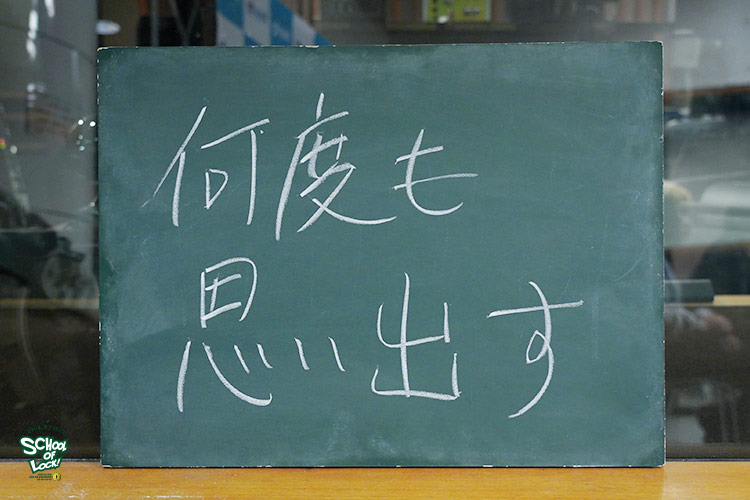 何度も
思い出す
SCHOOL
OF
LOCK!